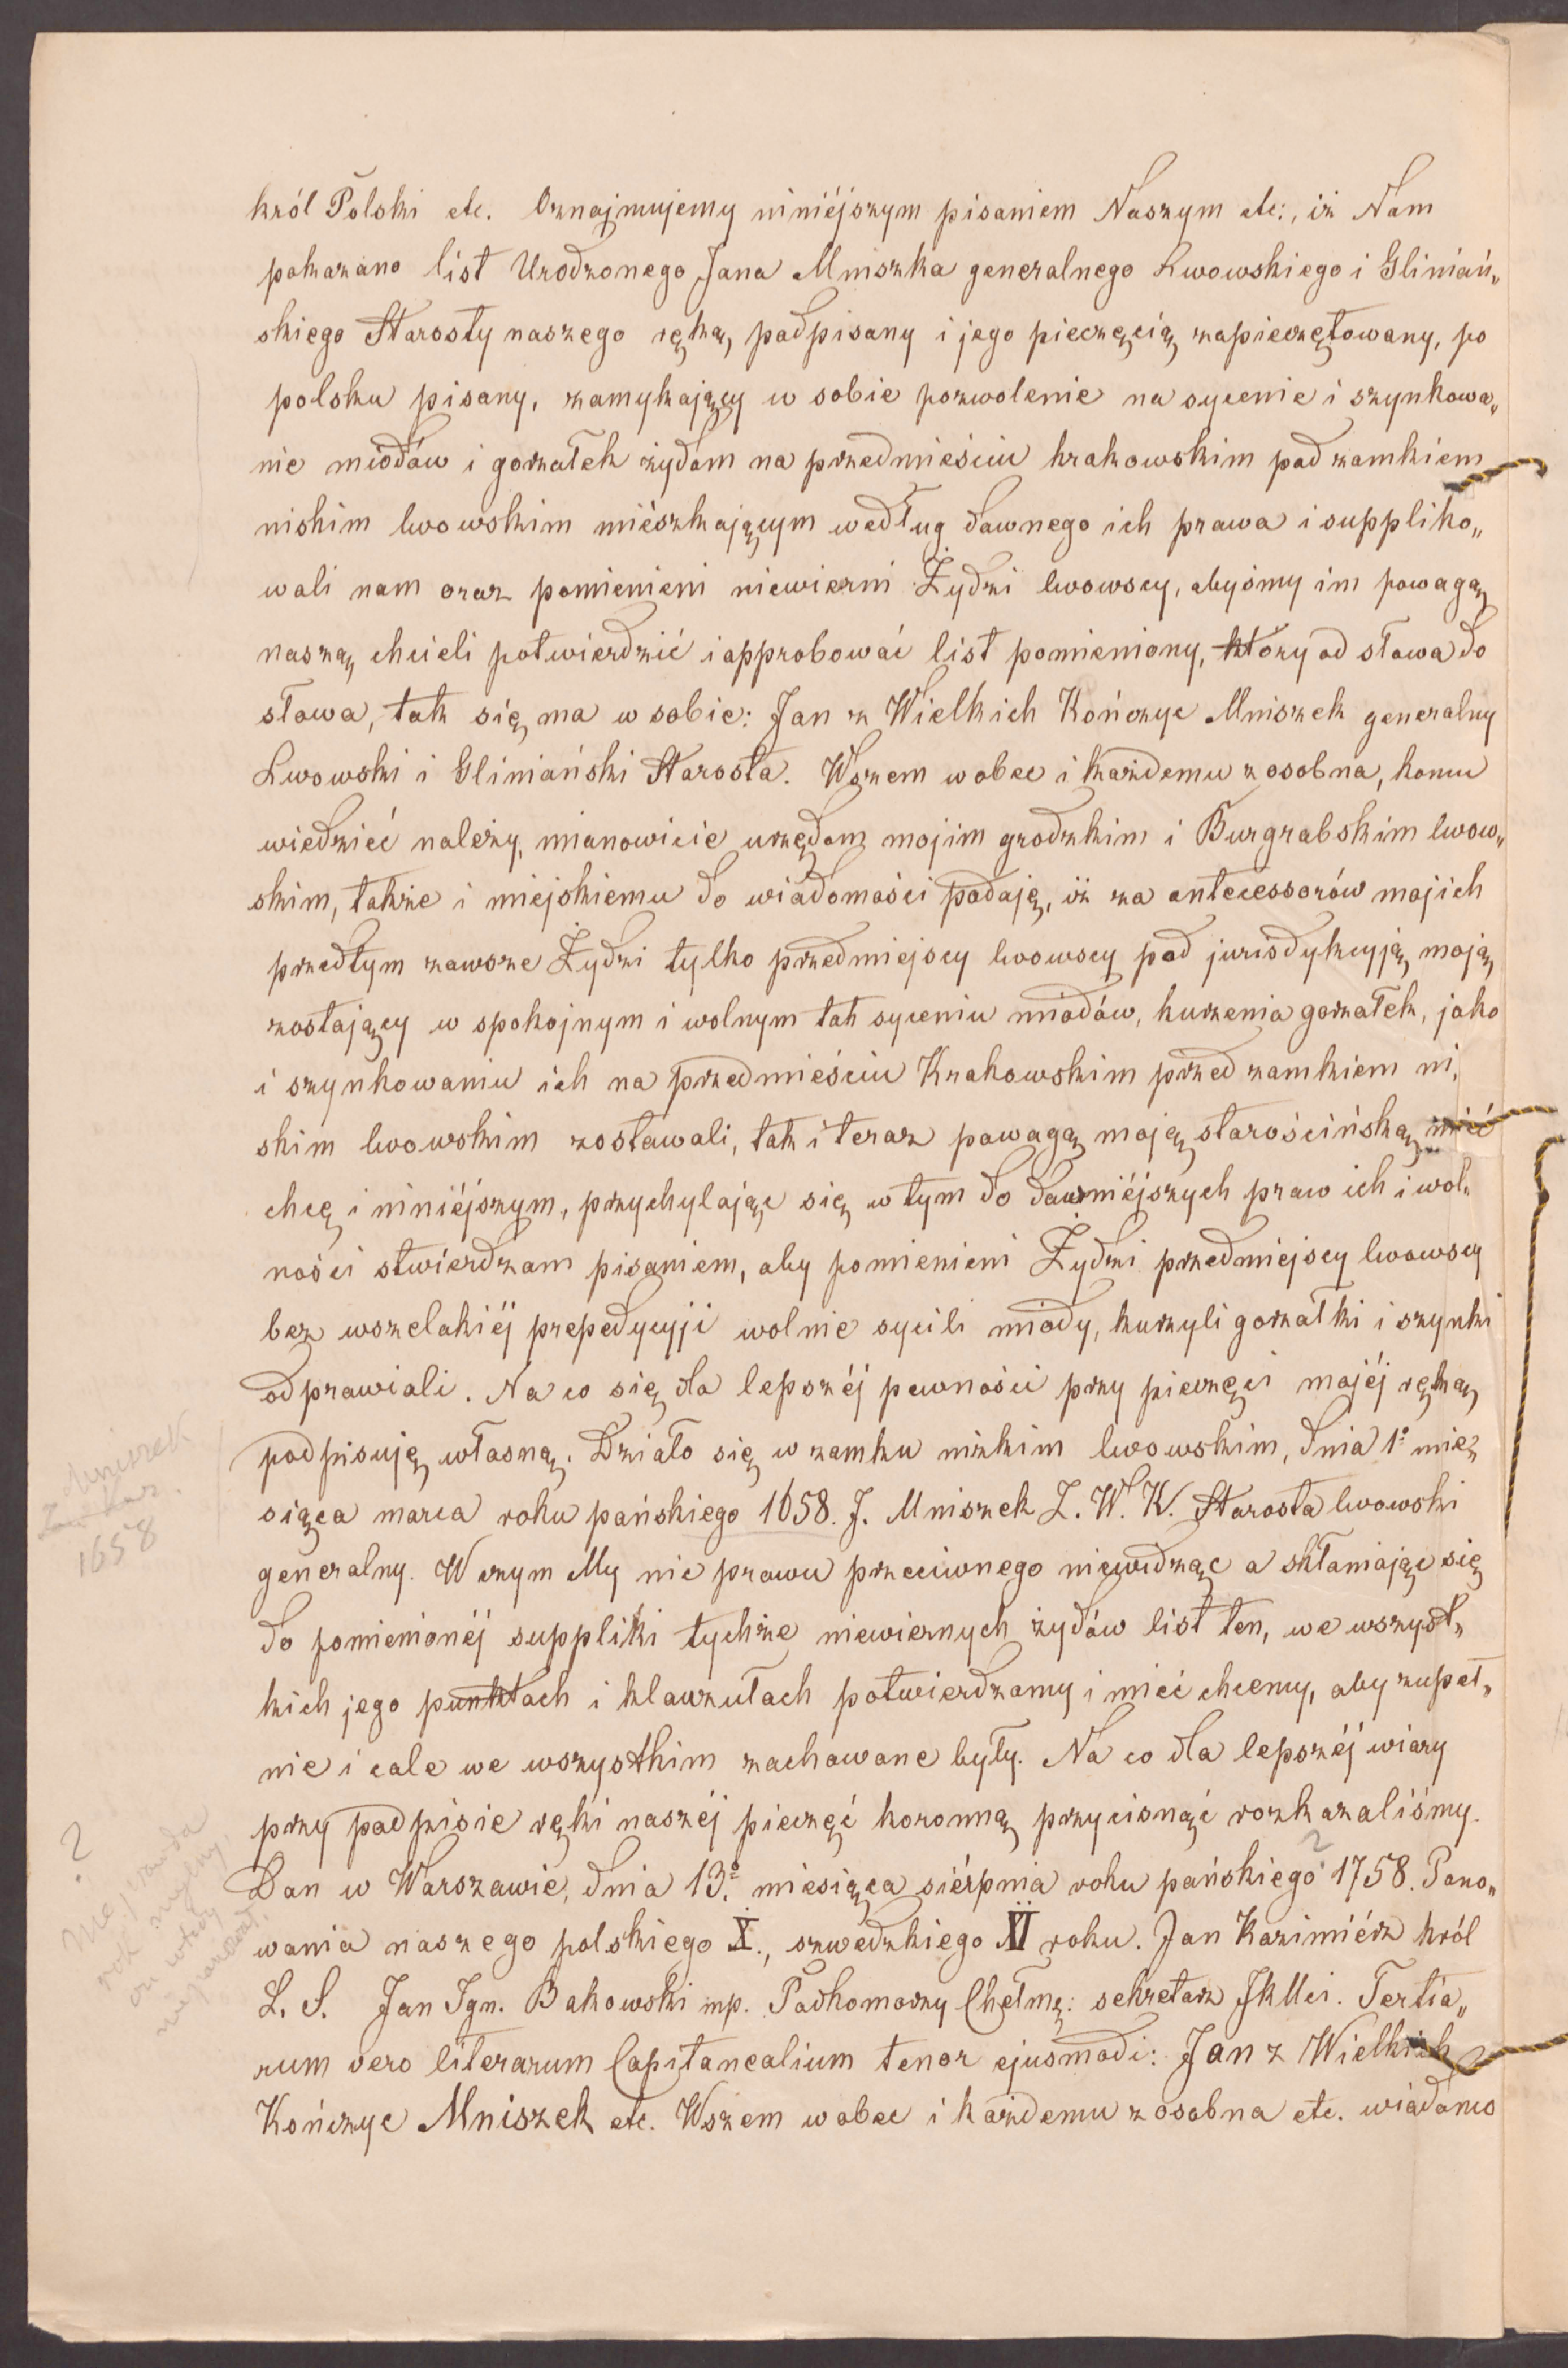 król Polski etc. Oznajmujemy niniéjszym pisaniem Naszym etc:, iż Nam
pokazano list Urodzonego Jana Mniszka generalnego Lwowskiego i Gliniań„
skiego Starosty naszego ręką podpisany i jego pieczęcią zapieczętowany, po
polsku pisany, zamykający w sobie pozwolenie na sycenie i szynkowa„
nie miodów i gorzałek żydom na przedmieściu krakowskim pod zamkiem
niskim lwowskim miészkającym według dawnego ich prawa i suppliko„
wali nam oraz pomienieni niewierni Żydzi lwowscy, abyśmy im powagą
naszą chcieli potwierdzić i approbować list pomieniony, który od słowa do
słowa, tak się ma w sobie: Jan z Wielkich Kończyc Mniszek generalny
Lwowski i Gliniański Starosta. Wszem wobec i każdemu z osobna, komu
wiedzieć należy, mianowicie urzędom mojim grodzkim i Burgrabskim lwow„
skim, także i miejskiemu do wiadomości podaję, iż za antecessorów mojich
przedtym zawsze Żydzi tylko przedmiejscy lwowscy pod jurisdykcyją moją
zostający w spokojnym i wolnym tak syceniu miodów, kurzenia gorzałek, jako
i szynkowaniu ich na przedmieściu Krakowskim przed zamkiem ni„
skim lwowskim zostawali, tak i teraz powagą moją starościńską mieć
chcę i niniéjszym, przychylając się w tym do dawniéjszych praw ich i wol„
ności stwierdzam pisaniem, aby pomienieni Żydzi przedmiejscy lwowscy
bez wszelakiéj prepedycyji wolnie sycili miody, kurzyli gorzałki i szynki
odprawiali. Na co się dla lepszéj pewności przy pieczęci mojéj ręką
podpisuję własną. Działo się w zamku nizkim lwowskim, dnia 1º mie„
siąca marca roku pańskiego 1658. J. Mniszek Z. W. K. Starosta lwowski
generalny. W czym My nic prawu przeciwnego niewidząc a skłaniając się
do pomienionéj suppliki tychże niewiernych żydów list ten, we wszyst„
kich jego punktach i klauzułach potwierdzamy i mieć chcemy, aby zupeł„
nie i cale we wszystkim zachowane były. Na co dla lepszéj wiary
przy podpisie ręki naszéj pieczęć koronną przycisnąć rozkazaliśmy.
Dan w Warszawie, dnia 13º miesiąca siérpnia roku pańskiego ? 1758. Pano„
wania naszego polskiego X., szwedzkiego XI roku. Jan Kazimiérz król
L. S. Jan Ign. Bakowski mp. Podkomorzy Chełmę: sekretarz JKMci. Tertia„
rum vero literarum Capitanealium tenor ejusmodi: Jan z Wielkich
Kończyc Mniszek etc. Wszem wobec i każdemu z osobna etc. wiadomo
Mniszek
1658
?
Nieprawda
rok mylny
on wtedy
nie panował.